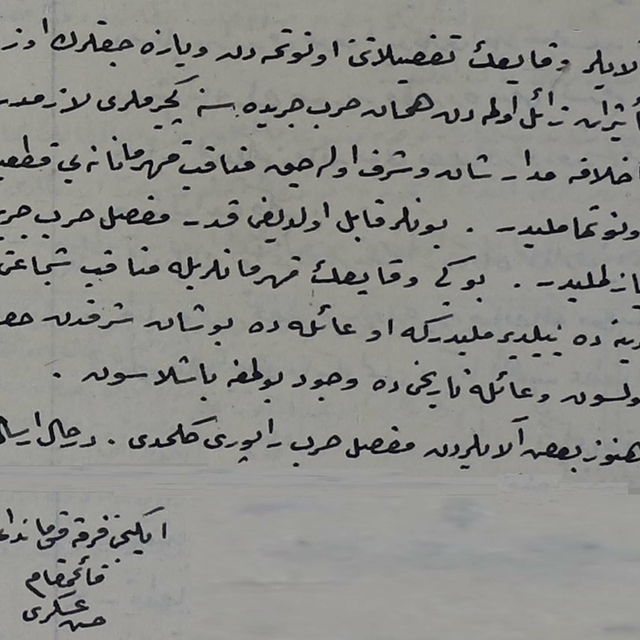 آلایلر وقایعك تفصیلاتنی اونوتمه‌دن و یازه جقلرك اوز
زائل اولمه‌دن همان حرب جریده سنه كچیرملری لازمدر
اخلافه مدار شان و شرف اوله‌جق مناقب قهرمانانه‌یی قطعیا
اونوتماملیدر . بونلر قابل اولدیغی قدر مفصل حرب جر
یازلملیدر . بو كبی وقایعك قهرمانلریله مناقب شجاعتی
ده بیلدیرملیدركه او عائله ده بو شان و شرفدن حصه
اولسون و عائله تاریخی ده وجود بولمغه باشلاسون .
هنوز بعض آلایلردن مفصل حرب راپوری كلمدی . درحال ارسال
ایكنجی فرقه قوماندانی
قائمقام
حسن عسكری